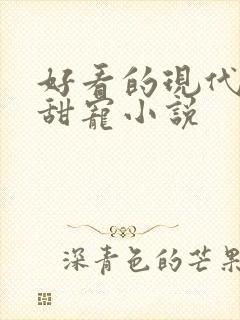 好看的現代
甜寵小説
深青色的芒果